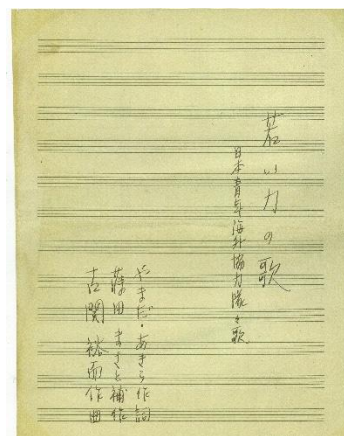 若い力の歌
日本青年海外協力隊の歌
やまだ・あきら作詞
藤田まさと補作
古関裕而作曲